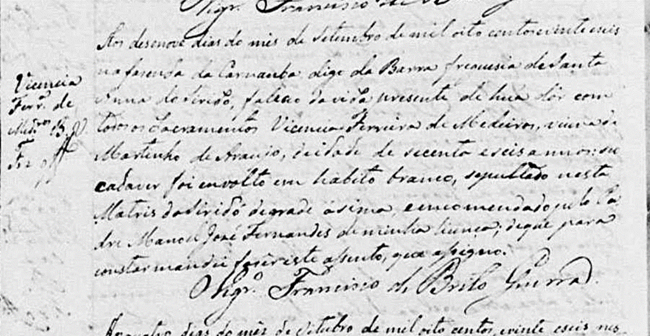 Vigr.º Francisco de
Aos desenove dias do mes de Setembro de mil oito centos evinte eseis
na fasenda da Carnauba digo da Barra freguesia de Santa
Anna do Siridó, faleceo da vida presente de hua dôr com
todos os Sacramentos Vicencia Ferreira de Medeiros, viuva de
Martinho de Araujo, deidade de secenta eseis annos: seu
cadaver foi envolto em habito branco, sepultado nesta
Matris do Siridó degrade asima, eencomendado pelo Pa
dre Manoel José Fernandes deminha licença; deque para
constar mandei fazer este asento, que asigno.
Vigrº. Francisco de Brito Guerra.
Aos quatro dias do mes de Outubro de mil oito centos, evinte eseis nes
Vicencia
Ferrª. de
Med.os B.